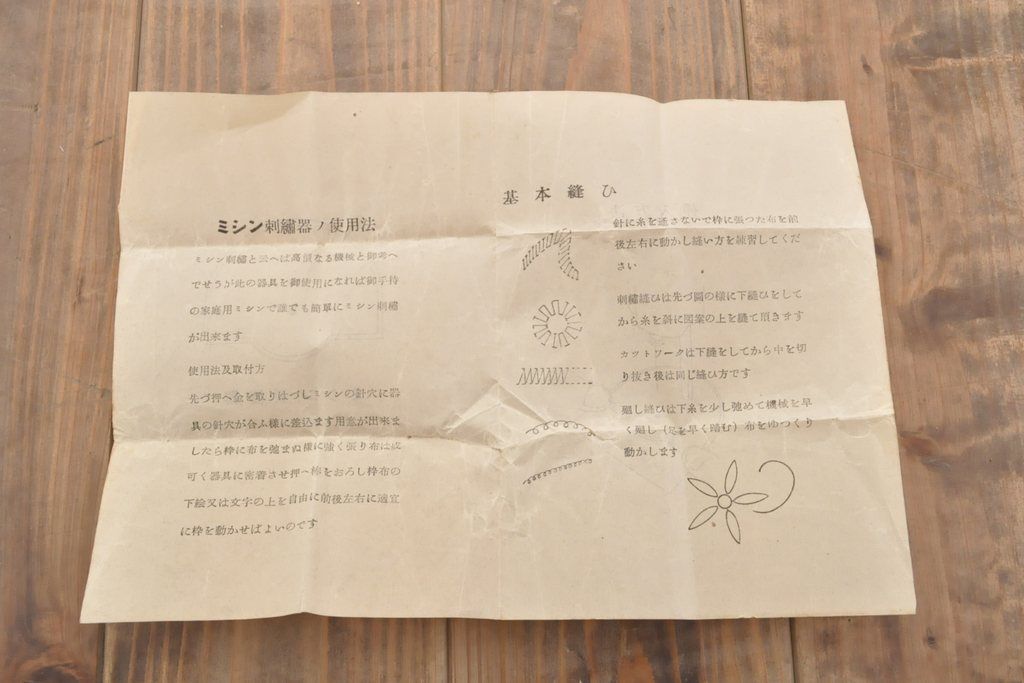 ミシン刺繡器ノ使用法
ミシン刺繡と云へば高價なる機械と御考へ
でせうが此の器具を御使用になれば御手持
の家庭用ミシンで誰でも簡單にミシン刺繡
が出来ます
使用法及取付方
先づ押へ金を取りはづしミシンの針穴に器
具の針穴が合ふ様に差込ます用意が出来ま
したら枠に布を弛まぬ様に強く張り布は成
可く器具に密着させ押へ棒をおろし枠布の
下絵又は文字の上を自由に前後左右に適宜
に枠を動かせばよいのです
基本縫ひ
針に糸を通さないで枠に張つた布を前
後左右に動かし縫い方を練習してくだ
さい
刺繡縫ひは先づ圖の様に下縫ひをして
から糸を斜に図案の上を縫て頂きます
カットワークは下縫をしてから中を切
り抜き後は同じ縫ひ方です
廻し縫ひは下糸を少し弛めて機械を早
く廻し（足を早く踏む）布をゆつくり
動かします